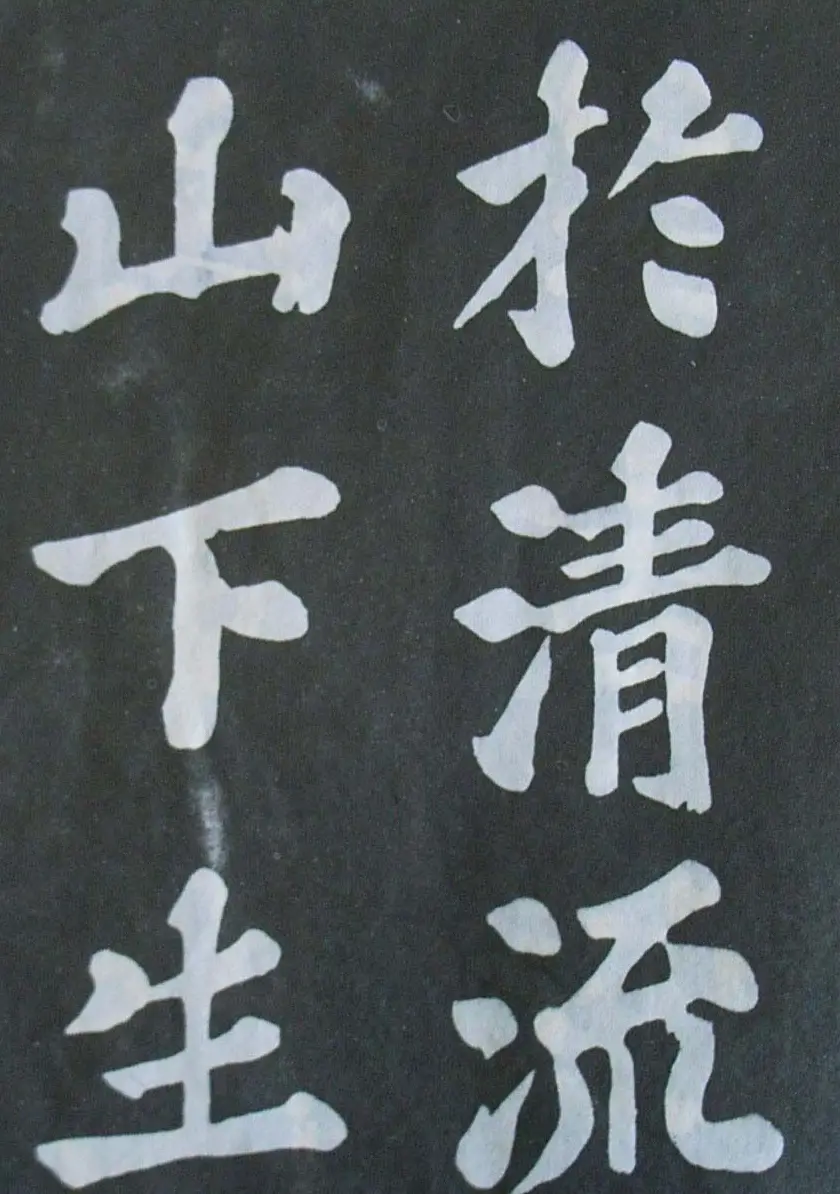 於清流
山下生